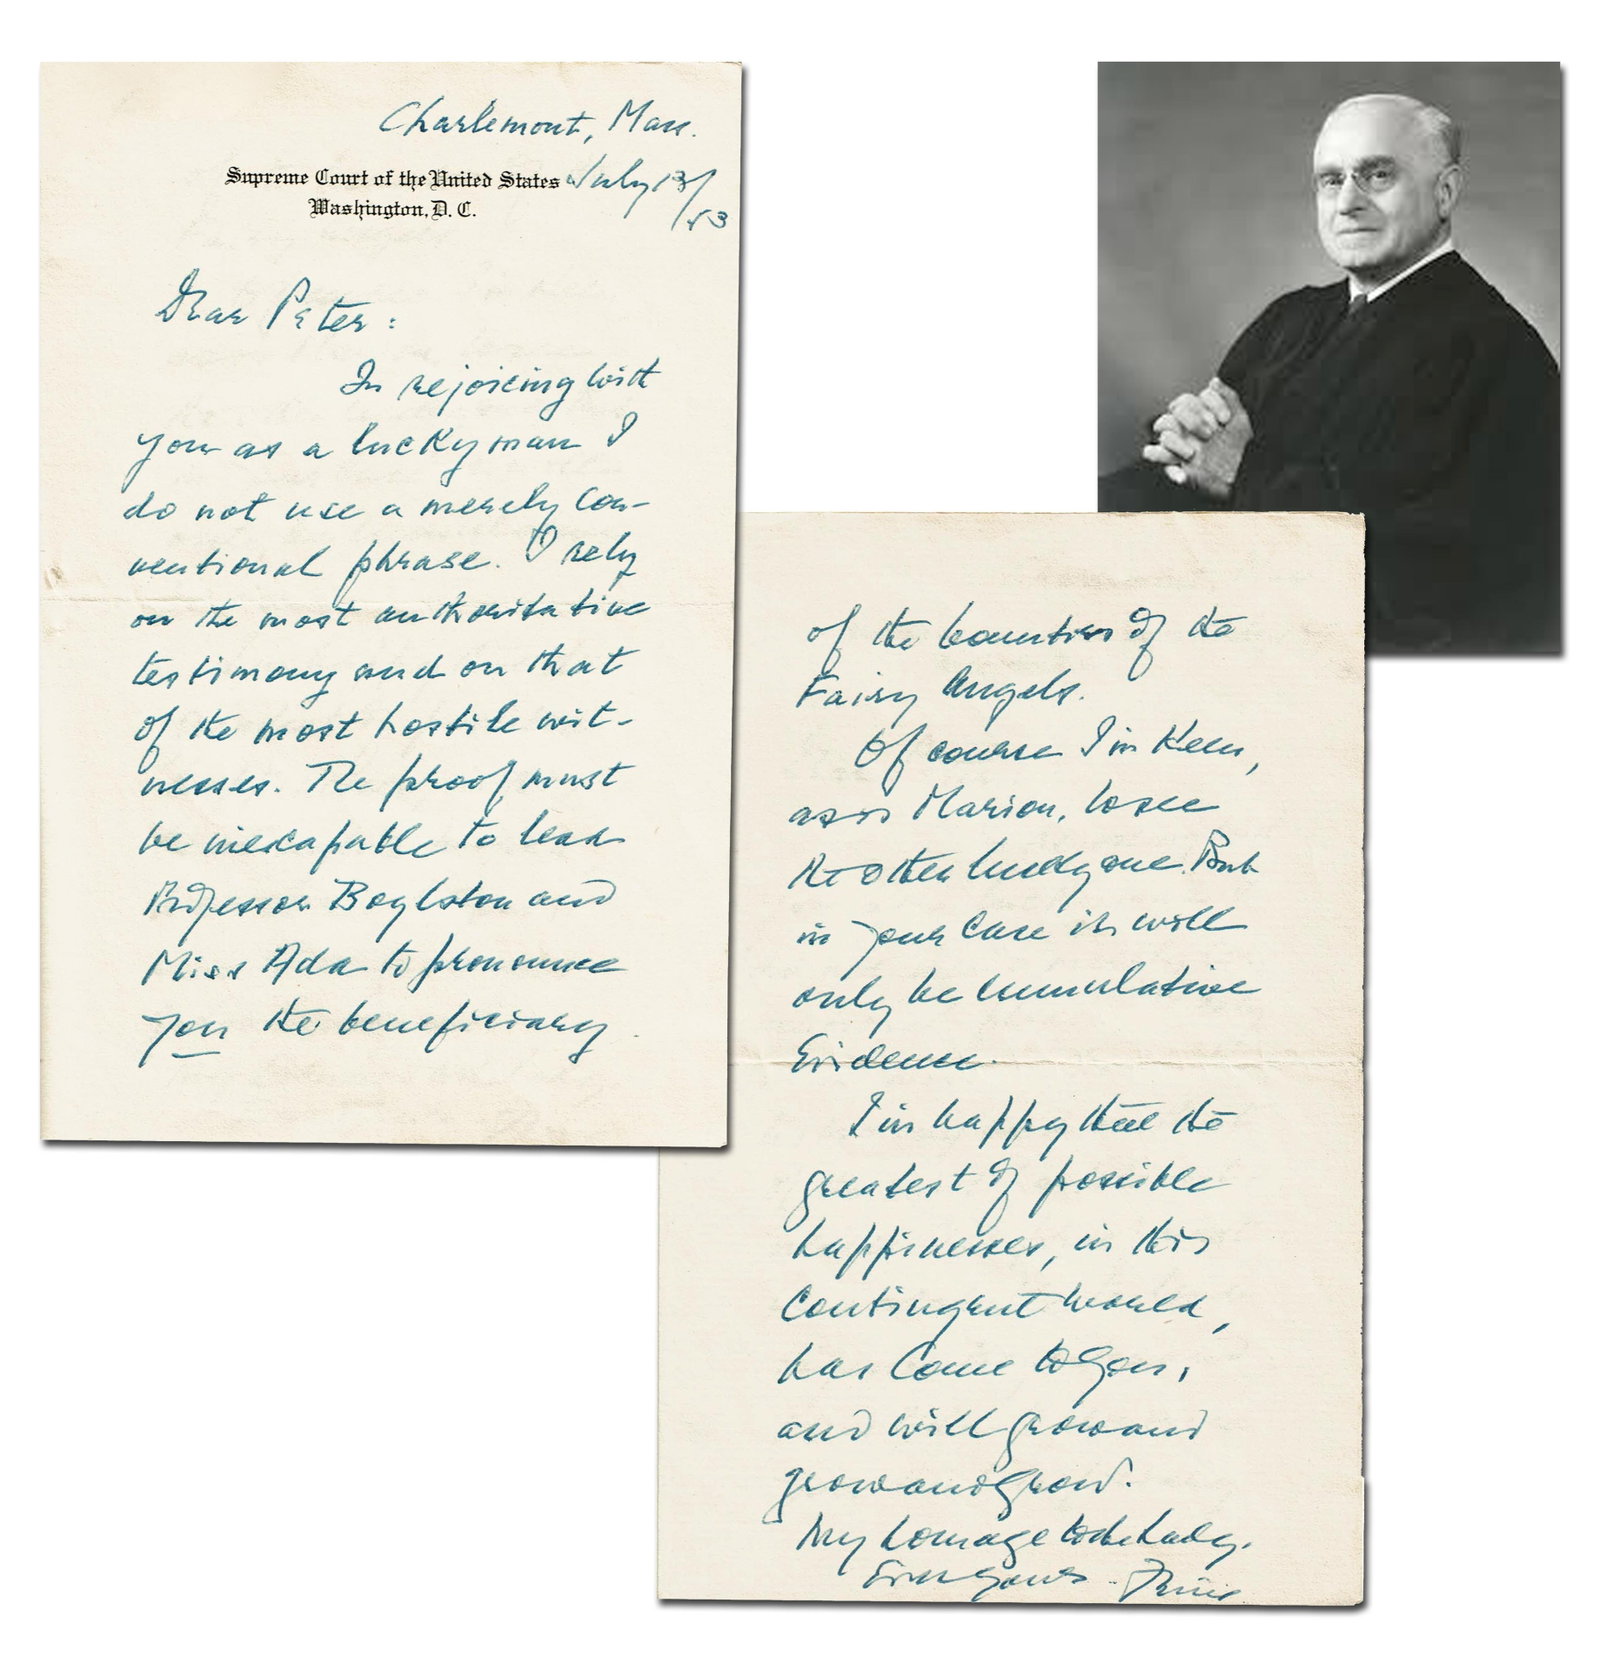 Charlemont, Mass.
Supreme Court of the United States July 13/
Washington, D. C. /53
Dear Peter:
In rejoicing with
you as a lucky man I
do not use a merely con-
ventional phrase. I rely
on the most authoritative
testimony and on that
of the most hostile wit-
nesses. The proof must
be inescapable to lead
Professor Boylston and
Miss Ada to pronounce
you the beneficiary
of the bounties of the
Fairy Angels.
Of course I'm keen,
as is Marion, to see
the other lucky one. But
in your case it will
only be cumulative
Evidence.
I'm happy that the
greatest of possible
happinesses, in this
Contingent world,
has come to you,
and will grow and
grow and grow.
My homage to the Lady.
Ever yours